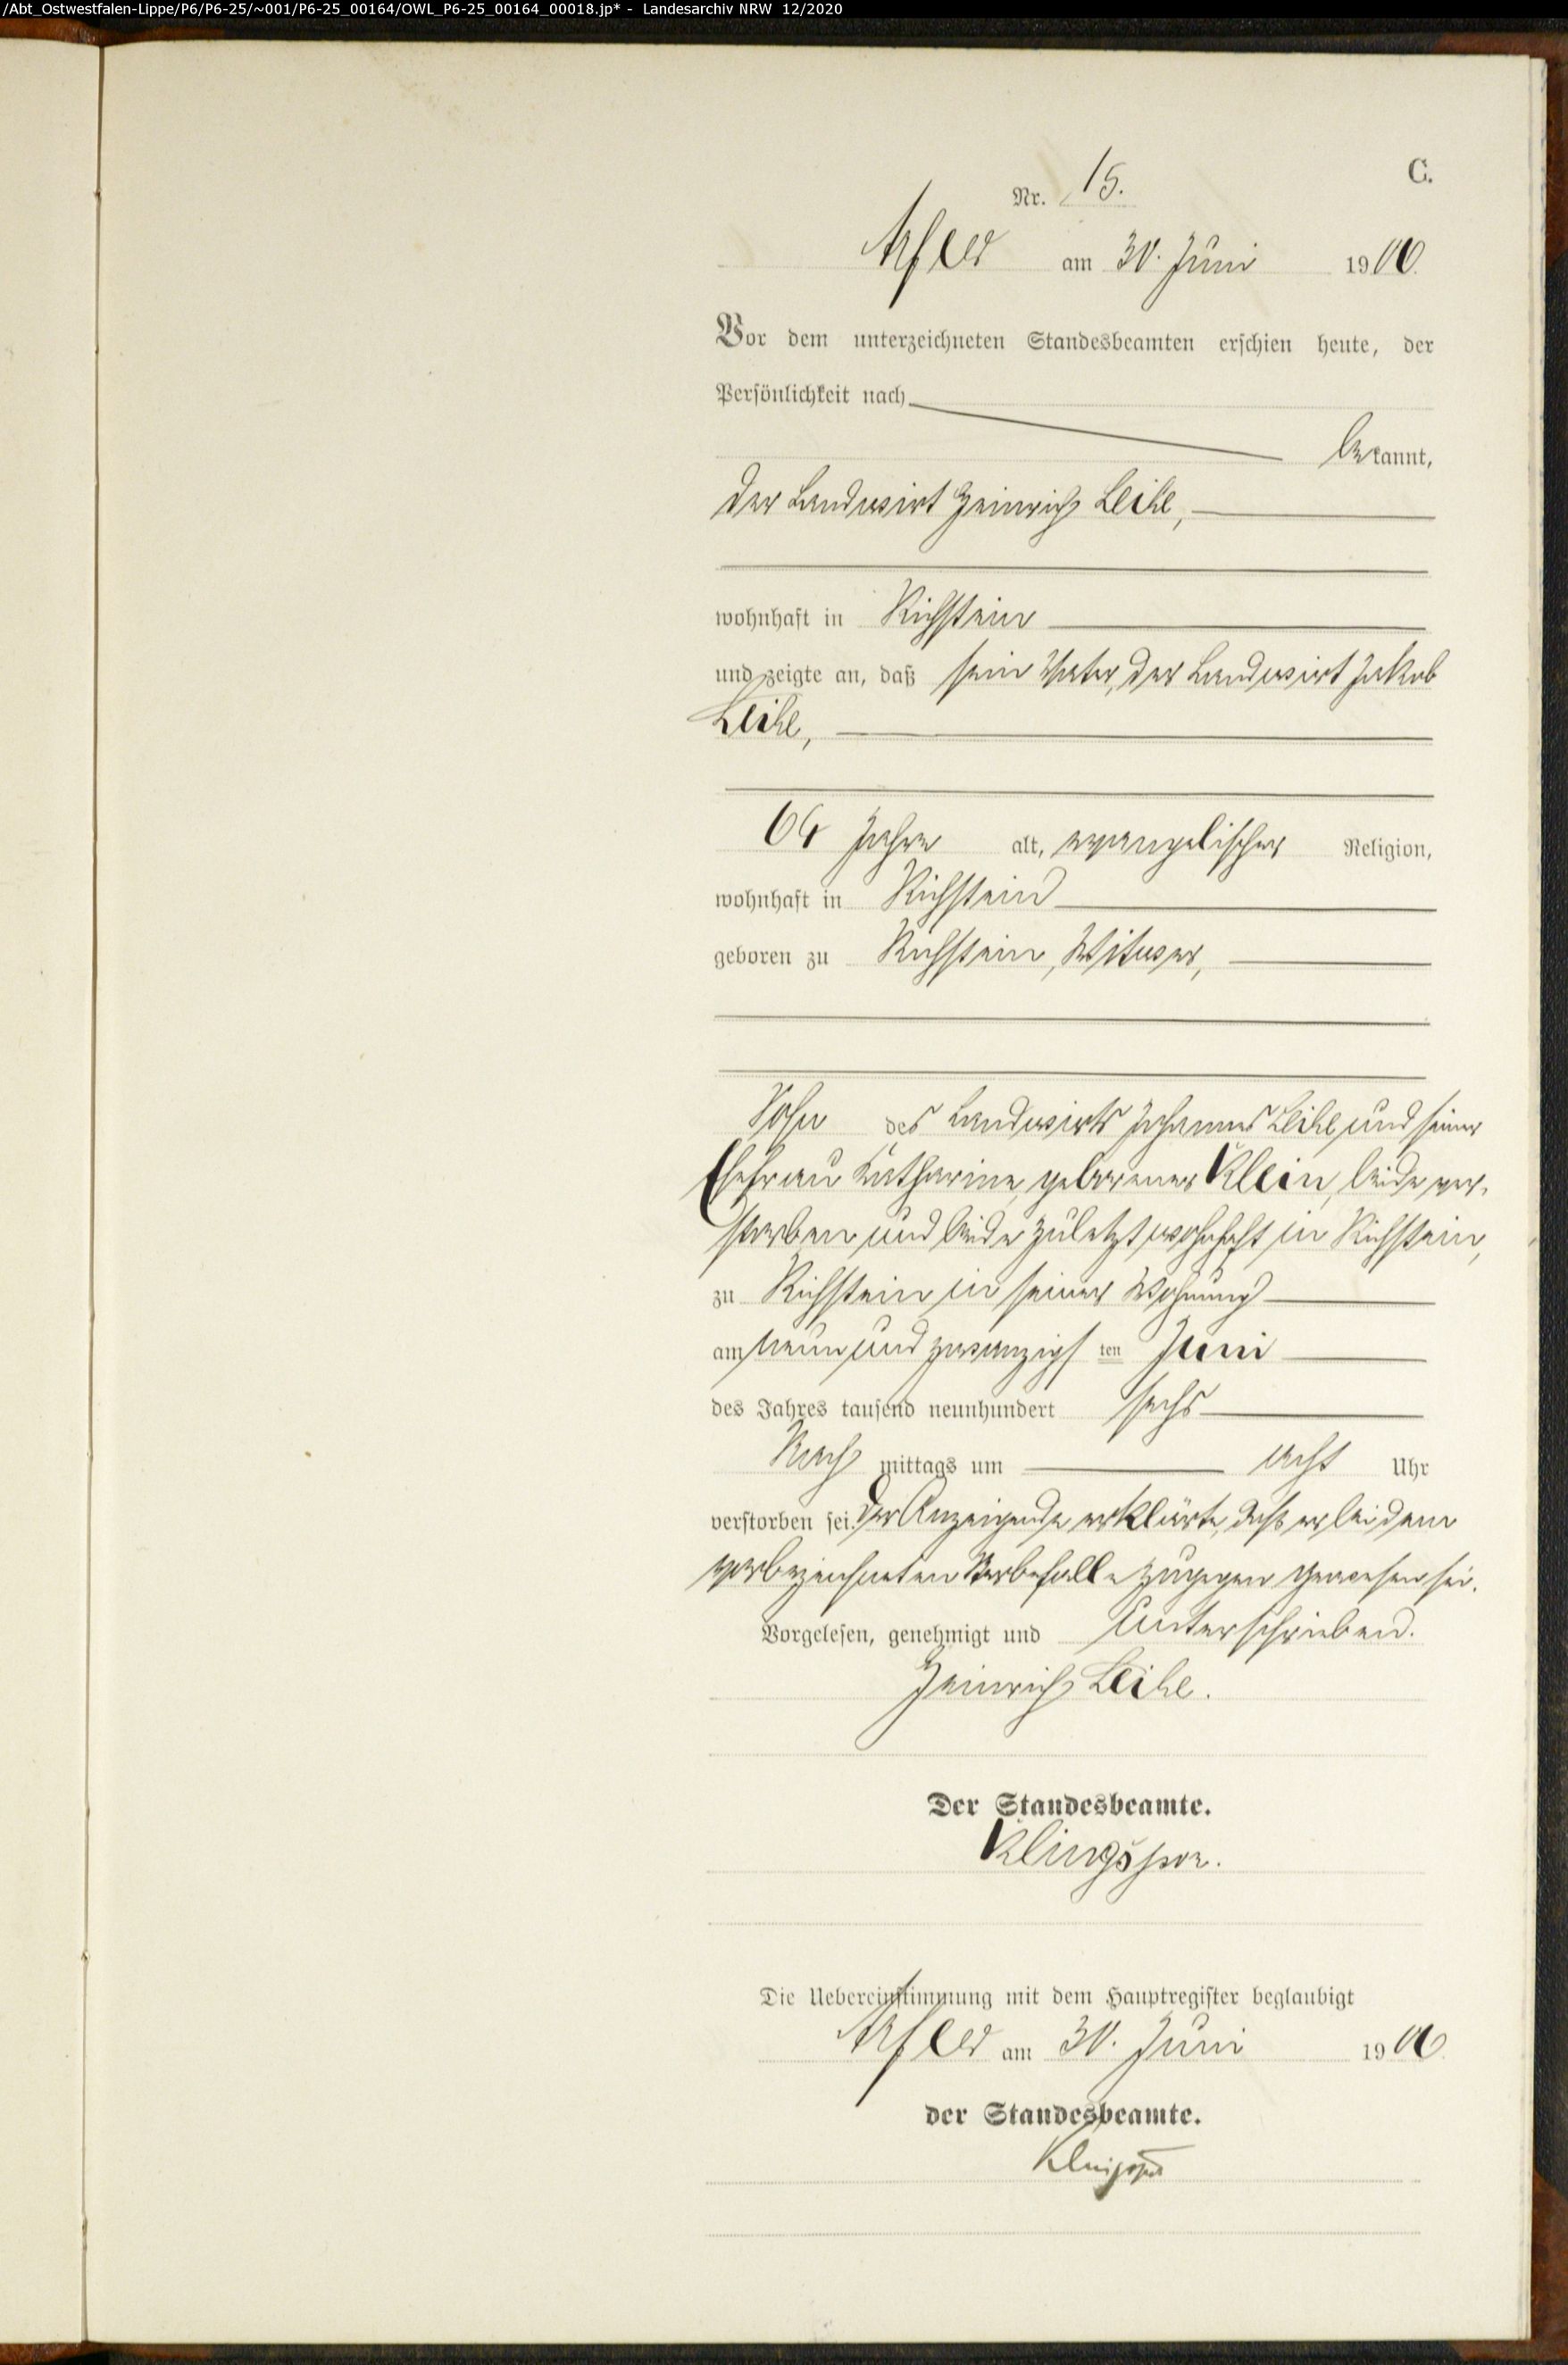 /Abt_Ostwestfalen-Lippe/P6/P6-25/~001/P6-25_00164/OWL_P6-25_00164_00018.jp* - Landesarchiv NRW 12/2020
C.
Nr. 15.
Arfeld am 30. Juni 1906.
Vor dem unterzeichneten Standesbeamten erschien heute, der
Persönlichkeit nach
bekannt,
der Landwirt Heinrich
wohnhaft in Richstein
und zeigte an, daß sein Vater, der Landwirt Jakob
Jahre alt, evangelischer Religion,
wohnhaft in Richstein
geboren zu Richstein, Witwer,
Sohn des Landwirts Johannes und seiner
Ehefrau Katharine, geborener Klein, beide ver-
storben und beide zuletzt wohnhaft in Richstein,
zu Richstein in seiner Wohnung
am neun und zwanzigsten Juni
des Jahres tausend neunhundert sechs
Nach mittags um acht Uhr
verstorben sei. Der Anzeigende erklärte, daß er bei dem
vorbezeichneten Sterbefalle zugegen gewesen sei.
Vorgelesen, genehmigt und unterschrieben.
Heinrich
Der Standesbeamte.
Klingspor.
Die Uebereinstimmung mit dem Hauptregister beglaubigt
Arfeld am 30. Juni 1906.
der Standesbeamte.
Klingspor